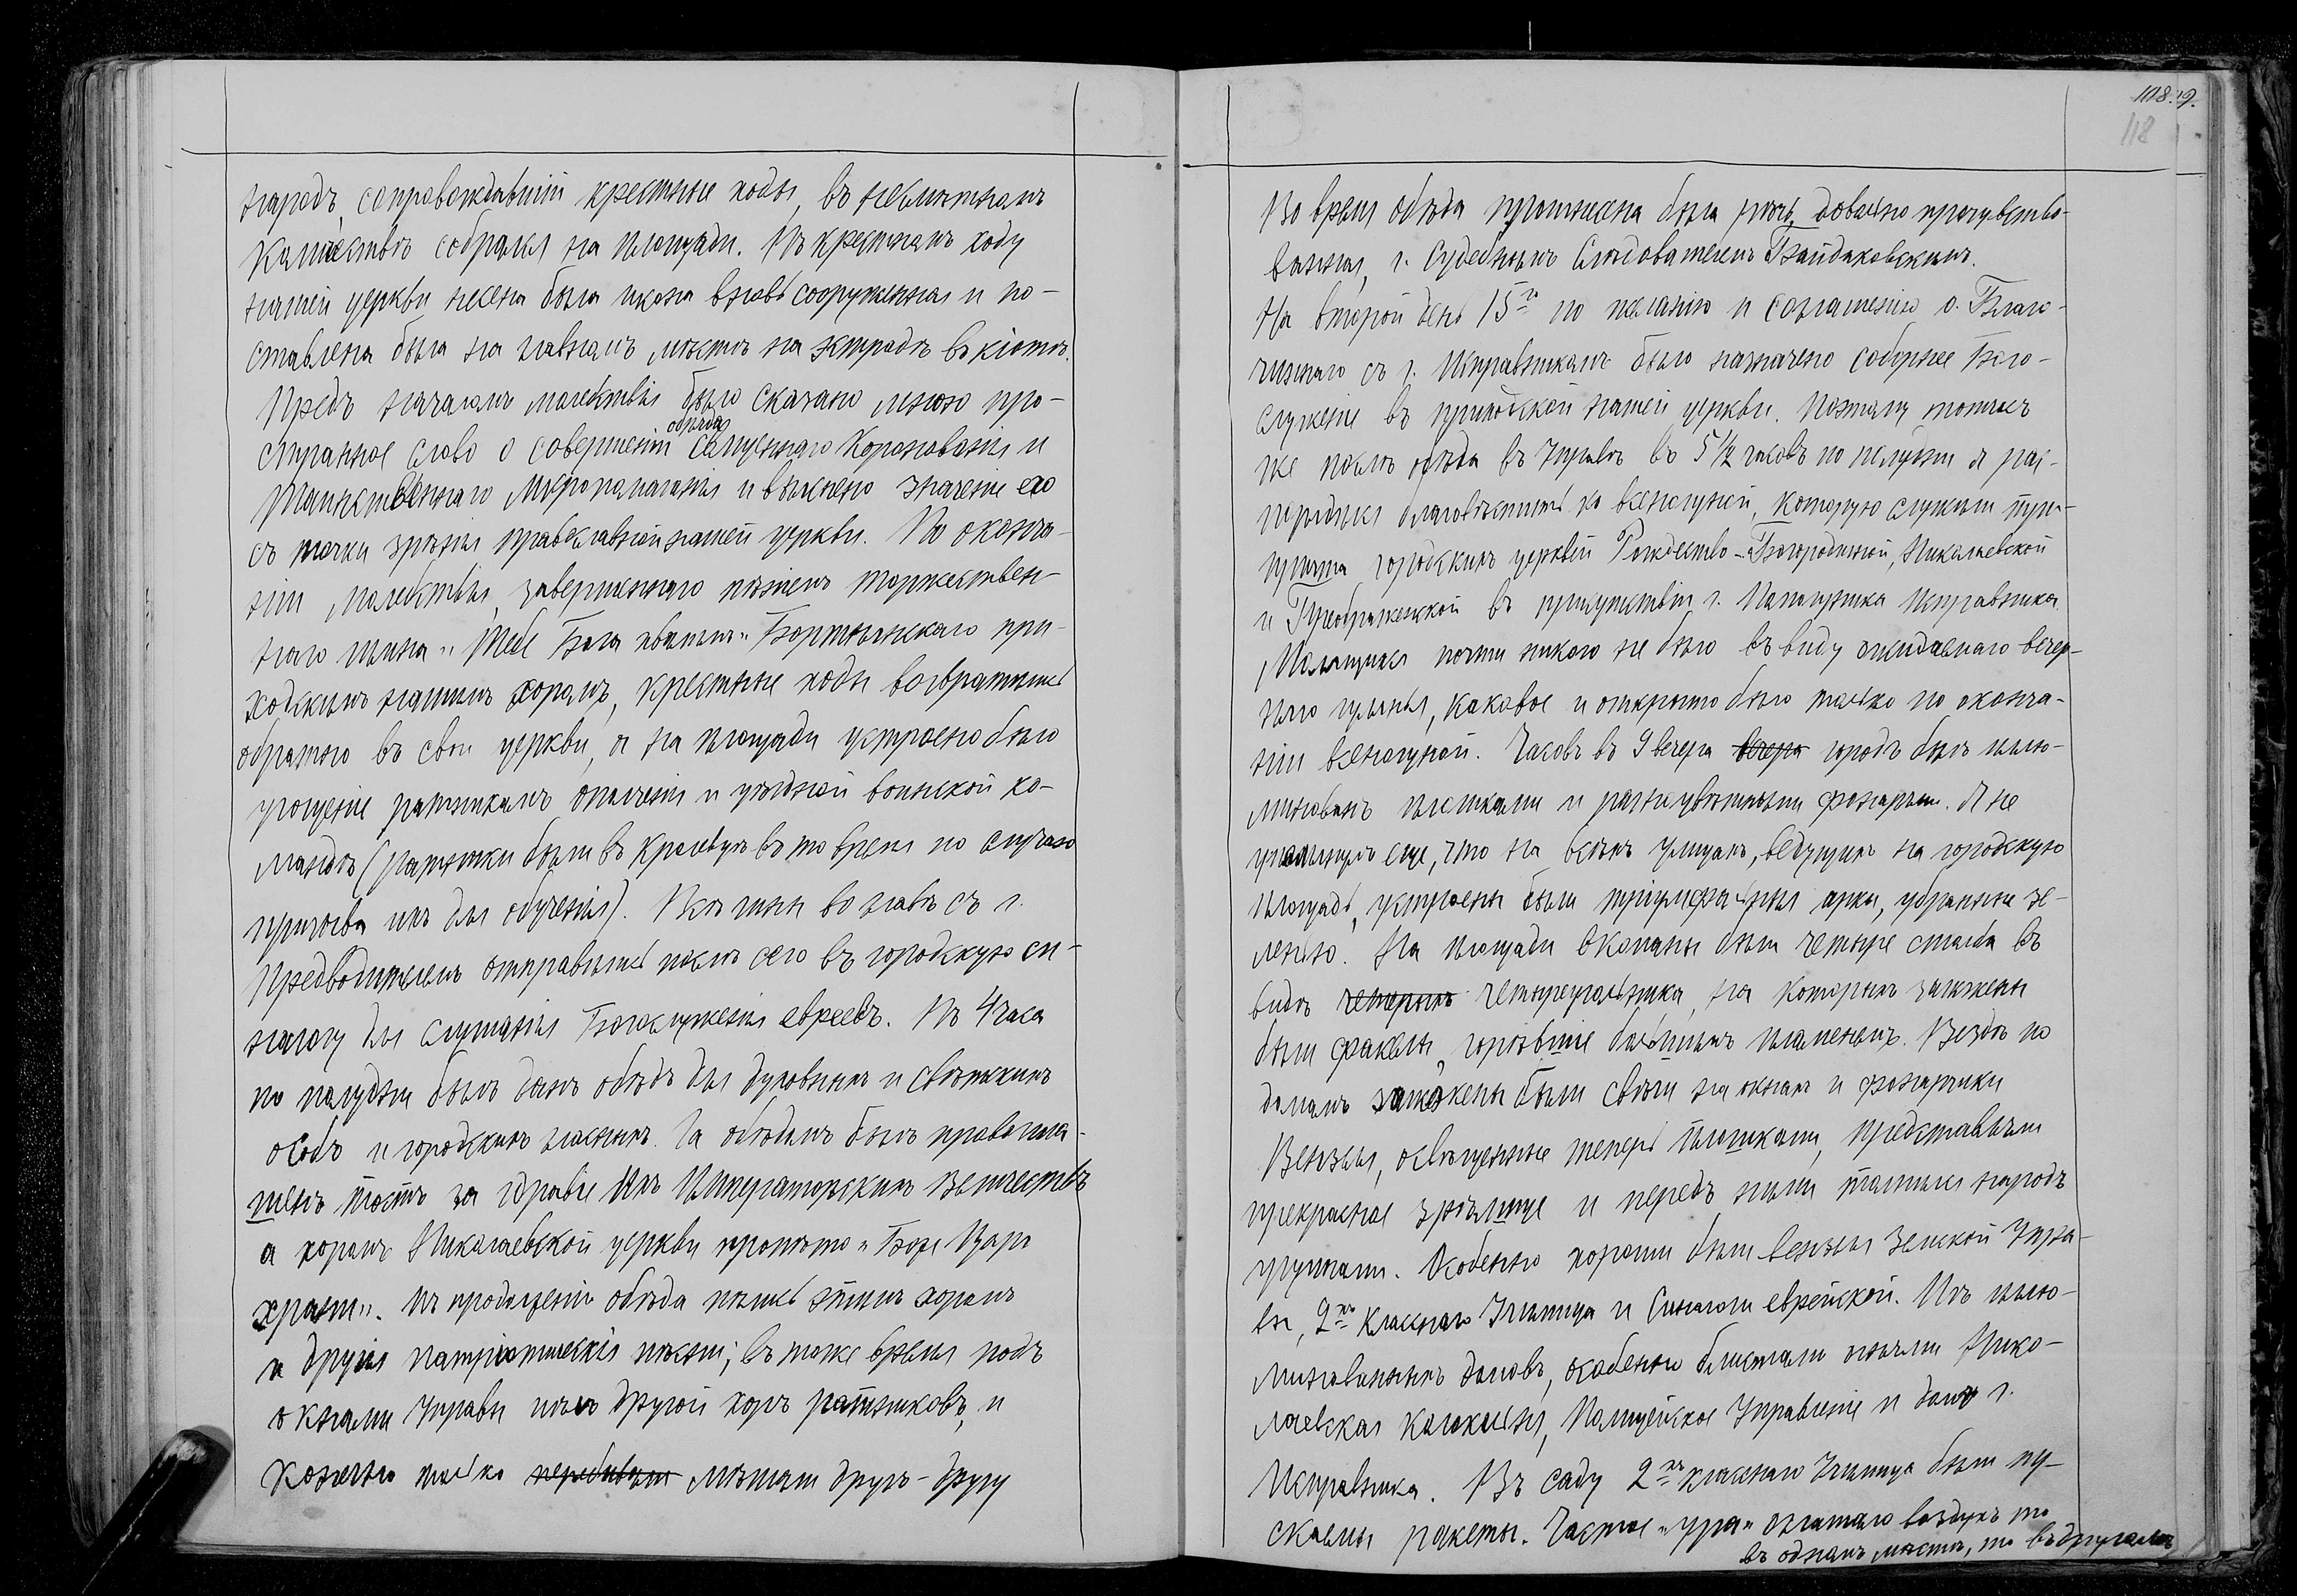 народъ, сопровождавшій крестные ходы, въ несмѣтномъ
количествѣ собрался на площади. Въ крестномъ ходу
нашей церкви несена была икона вновь сооруженная и по-
ставлена была на главномъ мѣстѣ на эстрадѣ въ кіотѣ.
Предъ началомъ молебствія было сказано мною про-
странное слово о совершеніи обряда священнаго Коронованія и
Таинственнаго Мѵропомазанія и выяснено значеніе его
съ точки зрѣнія православной нашей церкви. По оконча-
ніи молебствія, завершеннаго пѣніемъ торжествен-
наго гимна „Тебе Бога хвалимъ" Бортнянскаго при-
ходскимъ нашимъ хоромъ, крестные ходы возвратились
обратно въ свои церкви, а на площади устроено было
угощеніе ратникамъ ополченія и уѣздной воинской ко-
мандѣ (ратники были въ Кролевцѣ въ то время по случаю
призыва ихъ для обученія). Всѣ чины во главѣ съ г.
Предводителемъ отправились послѣ сего въ городскую си-
нагогу для слушанія Богослуженія евреевъ. Въ 4 часа
по полудни былъ данъ обѣдъ для духовныхъ и свѣтскихъ
особъ и городскихъ гласныхъ. За обѣдомъ былъ провозгла-
шенъ тостъ за здравіе Ихъ Императорскихъ Величествъ
а хоромъ Николаевской церкви пропѣто „Боже Царя
храни". Въ продолженіи обѣда пѣлись этимъ хоромъ
и другія патріотическія пѣсни; въ тоже время подъ
окнами Управы пѣлъ другой хоръ ратниковъ, и
конечно только перебивали мѣшали другъ-другу
118 19.
118
Во время обѣда произнесена была рѣчь, довольно прочувство-
ванная, г. Судебнымъ Слѣдователемъ Байдаковскимъ.
На второй день 15го по желанію и соглашенію о. Благо-
чиннаго съ г. Исправникомъ было назначено соборное Бого-
служеніе въ приходской нашей церкви. Поэтому тотчасъ
же послѣ обѣда въ Управѣ въ 5 1/2 часовъ по полудни я рас-
порядился благовѣстить ко всенощной, которую служили при-
чта городскихъ церквей Рождество-Богородичной, Николаевской
и Преображенской въ присутствіи г. Помощника Исправника.
Молящихся почти никого не было въ виду ожидаемаго вечер-
няго гулянья, каковое и открыто было только по оконча-
ніи всенощной. Часовъ въ 9 вечера вечера городъ былъ иллю-
минованъ плошками и разноцвѣтными фонарями. Я не
упомянулъ еще, что на всѣхъ улицахъ, ведущихъ на городскую
площадь, устроены были тріумфальныя арки, убранныя зе-
ленью. На площади вкопаны были четыре столба въ
видѣ четырехъ четыреугольника, на которыхъ зажжены
были факелы, горѣвшіе большимъ пламенемъ. Вездѣ по
домамъ зажжены были свѣчи на окнахъ и фонарики
Вензеля, освѣщенные теперь плошками, представляли
прекрасное зрѣлище и передъ ними толпился народъ
группами. Особенно хороши были вензеля Земской Упра-
вы, 2хъ класснаго Училища и Синагоги еврейской. Изъ иллю-
минованныхъ домовъ, особенно блистали огнями Нико-
лаевская колокольня, Полицейское Управленіе и домъ г.
Исправника. Въ саду 2хъ класснаго Училища были пу-
скаемы ракеты. Частое „ура" оглашало воздухъ то
въ одномъ мѣстѣ, то въ другомъ,